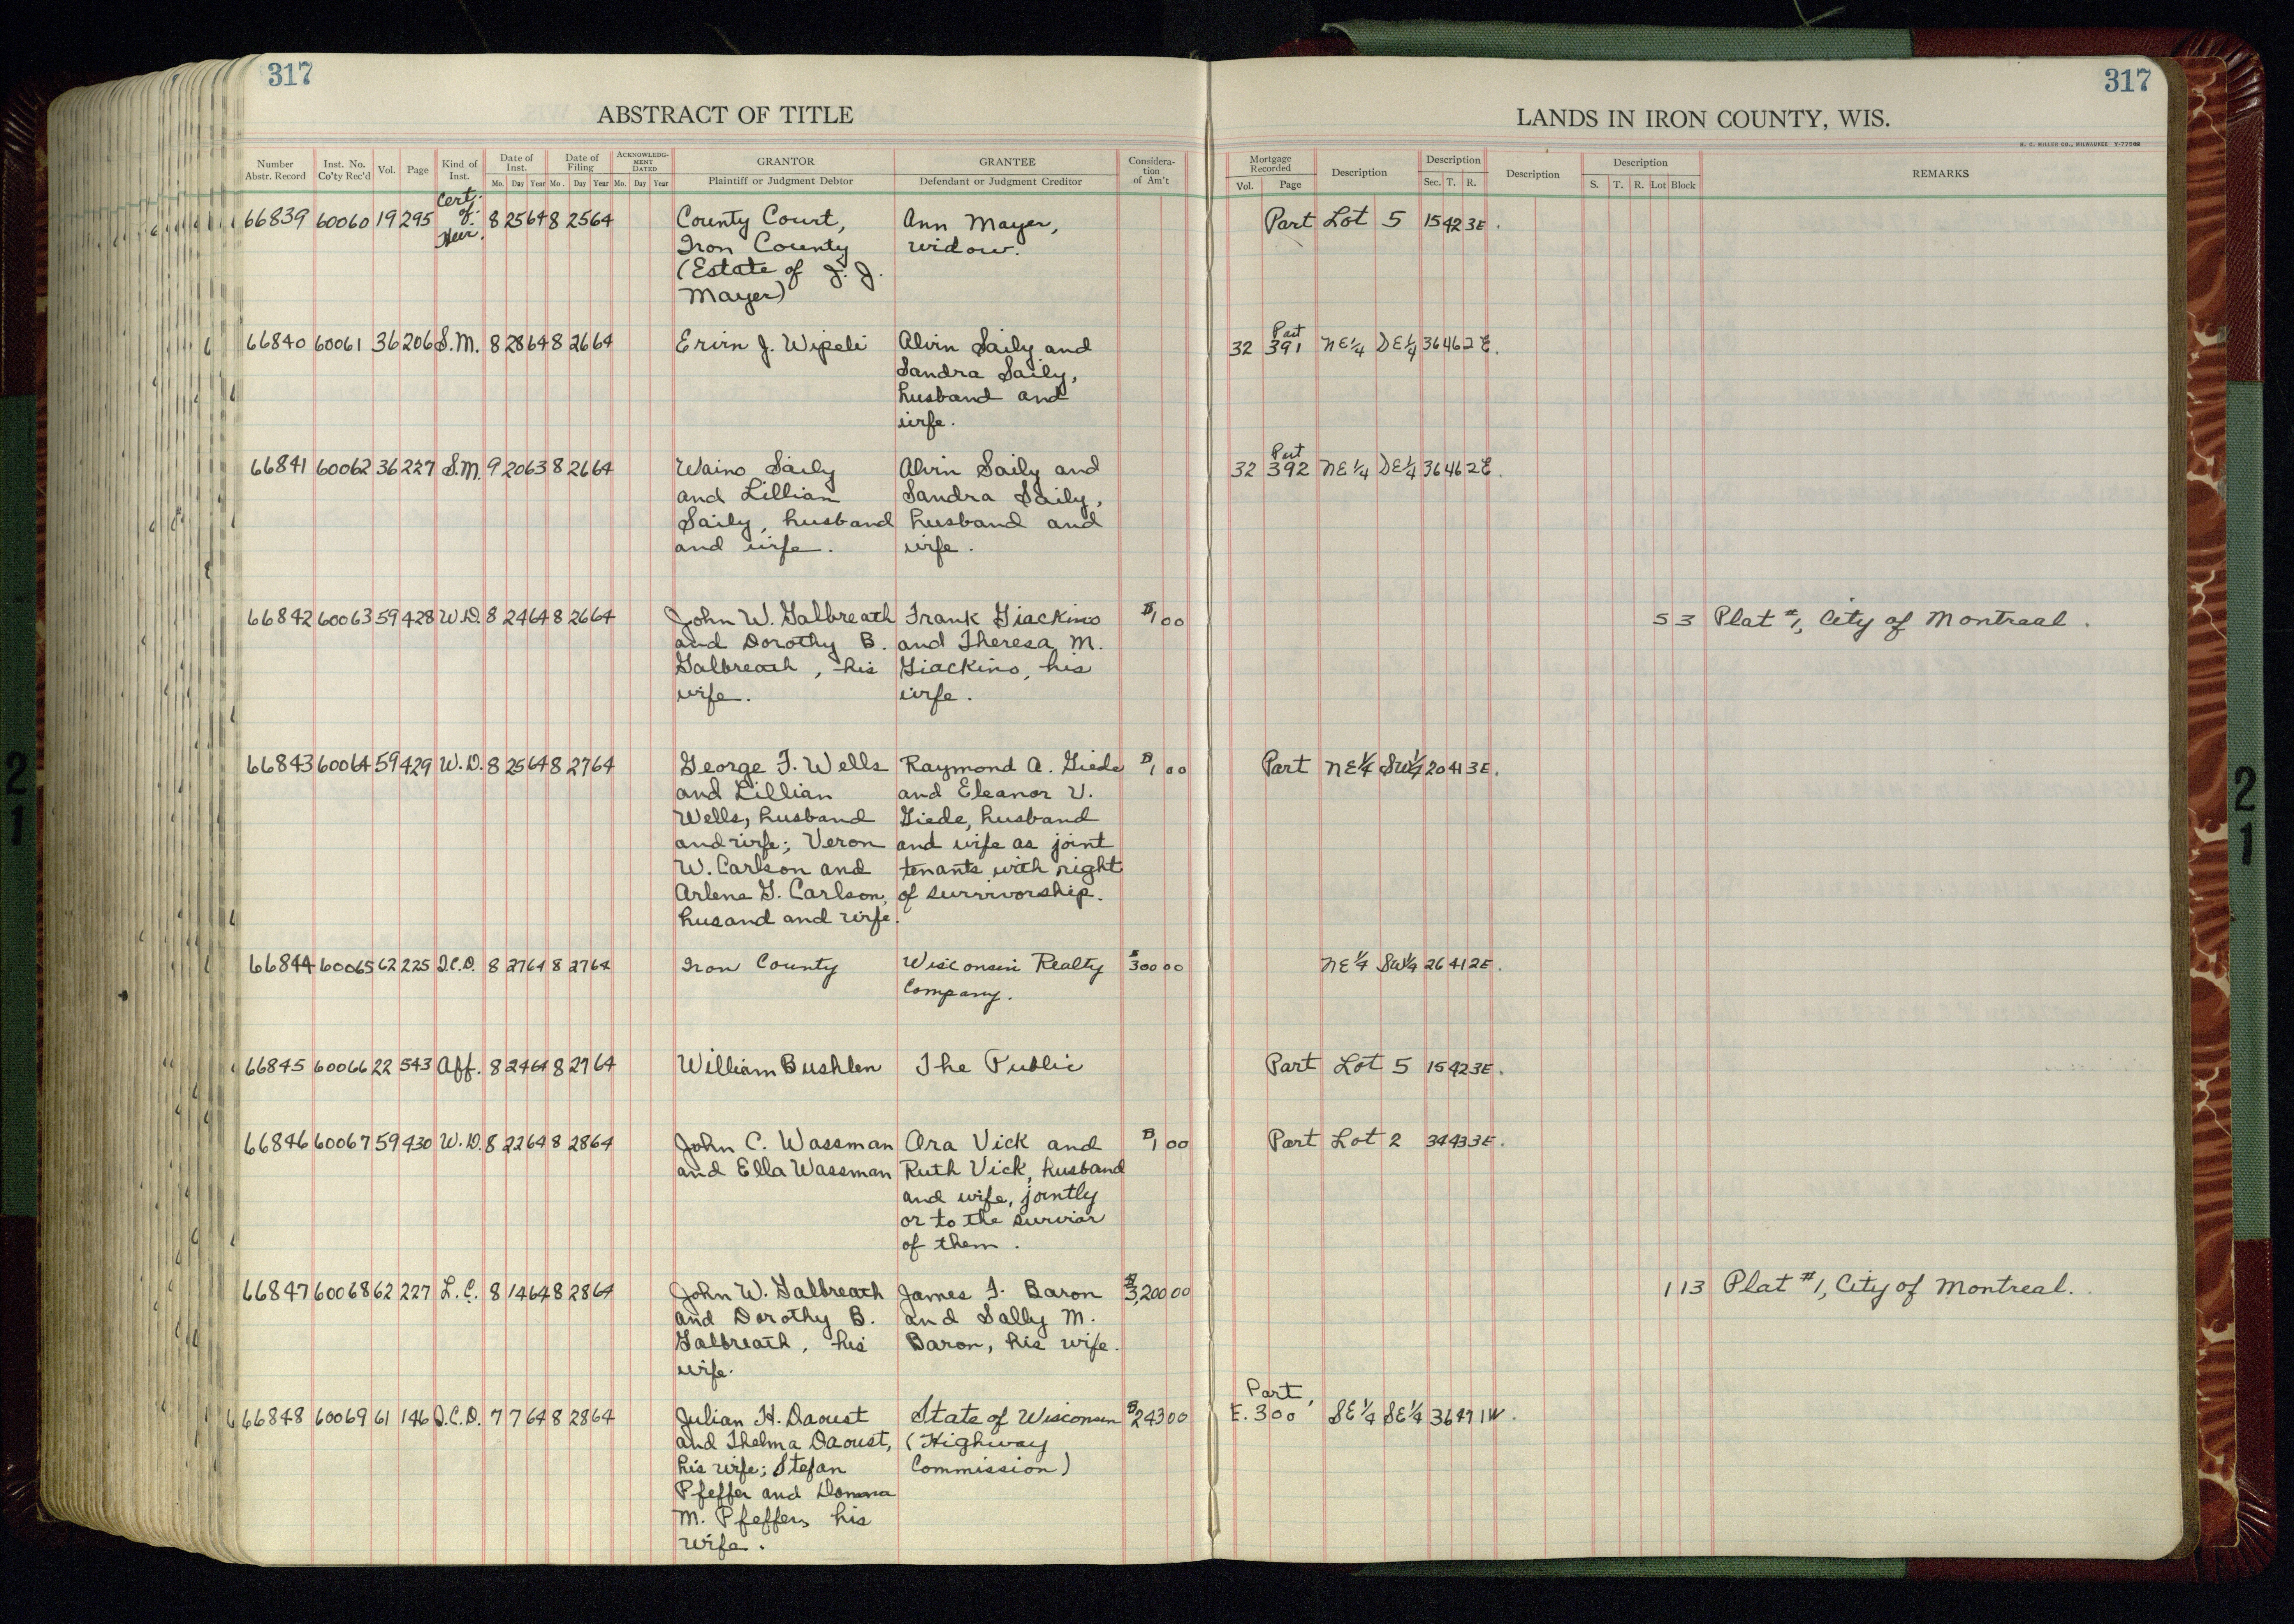 317
317
ABSTRACT OF TITLE
LANDS IN IRON COUNTY, WIS.
H. C. MILLER CO., MILWAUKEE
Number Abstr. Record Inst. No. Co'ty Rec'd Vol. Page Kind of Inst. Date of Inst. Mo. Day Year Date of Filing Mo. Day Year ACKNOWLEDGMENT DATED Mo. Day Year GRANTOR Plaintiff or Judgment Debtor GRANTEE Defendant or Judgment Creditor Consideration of Am't Mortgage Recorded Vol. Page Description Description Sec. T. R. Description Description S. T. R. Lot Block REMARKS
Cert.
66839 60060 19 295 of 8 25 64 8 25 64 County Court, Ann Mayer, Part Lot 5 15 42 3E.
Heir. Iron County widow.
(Estate of J. J.
Mayer)
Part
66840 60061 36 206 S.M. 8 28 64 8 26 64 Ervin J. Wipeli Alvin Saily and 32 391 NE¼ SE¼ 36 46 2E.
Sandra Saily,
husband and
wife.
Part
66841 60062 36 227 S.M. 9 20 63 8 26 64 Waino Saily Alvin Saily and 32 392 NE¼ SE¼ 36 46 2E.
and Lillian Sandra Saily,
Saily, husband husband and
and wife. wife.
66842 60063 59 428 W.D. 8 24 64 8 26 64 John W. Galbreath Frank Giackino $1 00 5 3 Plat #1, City of Montreal.
and Dorothy B. and Theresa M.
Galbreath, his Giackino, his
wife. wife.
66843 60064 59 429 W.D. 8 25 64 8 27 64 George F. Wells Raymond A. Giede $1 00 Part NE¼ SW¼ 20 41 3E.
and Lillian and Eleanor V.
Wells, husband Giede, husband
and wife; Veron and wife as joint
W. Carlson and tenants with right
Arlene G. Carlson, of survivorship.
husand and wife.
66844 60065 62 225 Q.C.D. 8 27 64 8 27 64 Iron County Wisconsin Realty $300 00 NE¼ SW¼ 26 41 2E.
Company.
66845 60066 22 543 Aff. 8 24 64 8 27 64 William Bushlen The Public Part Lot 5 15 42 3E.
66846 60067 59 430 W.D. 8 22 64 8 28 64 John C. Wassman Ora Vick and $1 00 Part Lot 2 34 43 3E.
and Ella Wassman Ruth Vick, husband
and wife, jointly
or to the survior
of them.
66847 60068 62 227 L.C. 8 14 64 8 28 64 John W. Galbreath James F. Baron $3,200 00 1 13 Plat #1, City of Montreal.
and Dorothy B. and Sally M.
Galbreath, his Baron, his wife.
wife.
Part
66848 60069 61 146 Q.C.D. 7 7 64 8 28 64 Julian H. Daoust State of Wisconsin $243 00 E. 300' SE¼ SE¼ 36 47 1W.
and Thelma Daoust, (Highway
his wife; Stefan Commission)
Pfeffer and Donna
M. Pfeffer, his
wife.
21
21